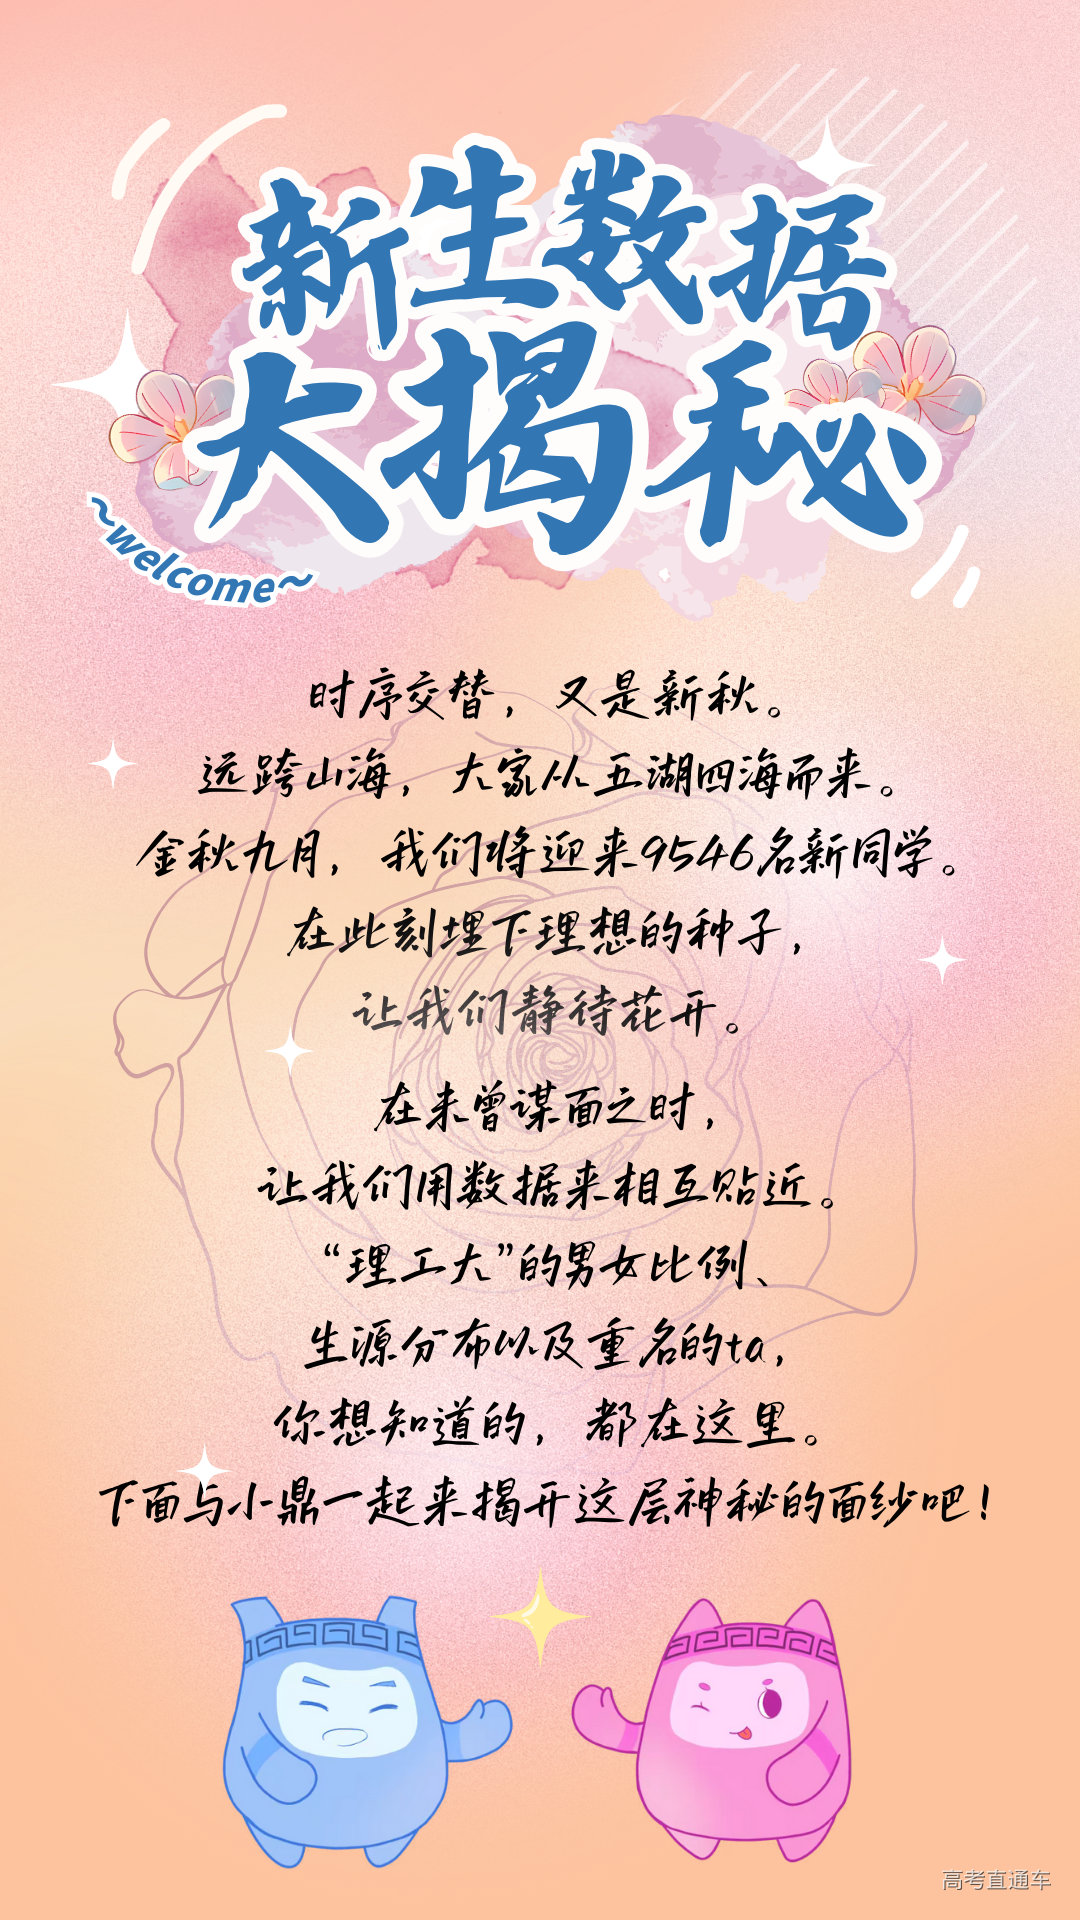 新生数据
大揭秘
~welcome~
时序交替，又是新秋。
远跨山海，大家从五湖四海而来。
金秋九月，我们将迎来9546名新同学。
在此刻埋下理想的种子，
让我们静待花开。
在未曾谋面之时，
让我们用数据来相互贴近。
“理工大”的男女比例、
生源分布以及重名的ta，
你想知道的，都在这里。
下面与小鼎一起来揭开这层神秘的面纱吧！
高考直通车